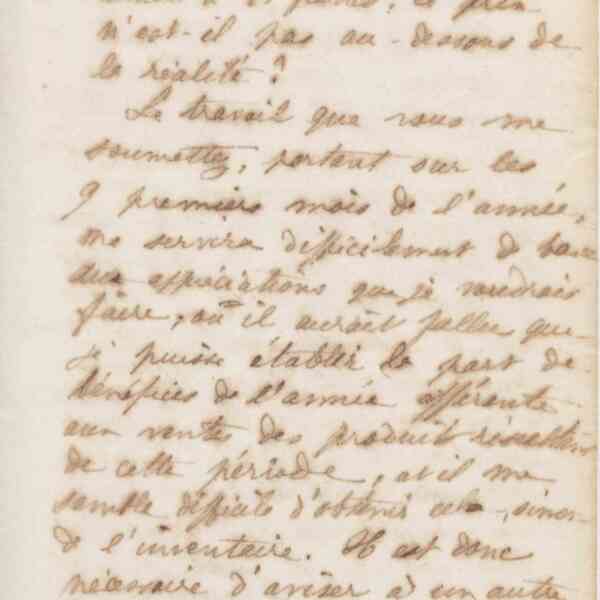 n'est-il pas au-dessous de
la réalité ?
Le travail que vous me
soumettez, portant sur les
9 premiers mois de l'année,
me servira difficilement de base
aux appréciations que je voudrais
faire, car il aurait fallu que
je puisse établir la part de
bénéfices de l'année afférente
aux ventes des produits résultant
de cette période, et il me
semble difficile d'obtenir cela, sinon
de l'inventaire. Il est donc
nécessaire d'aviser à un autre